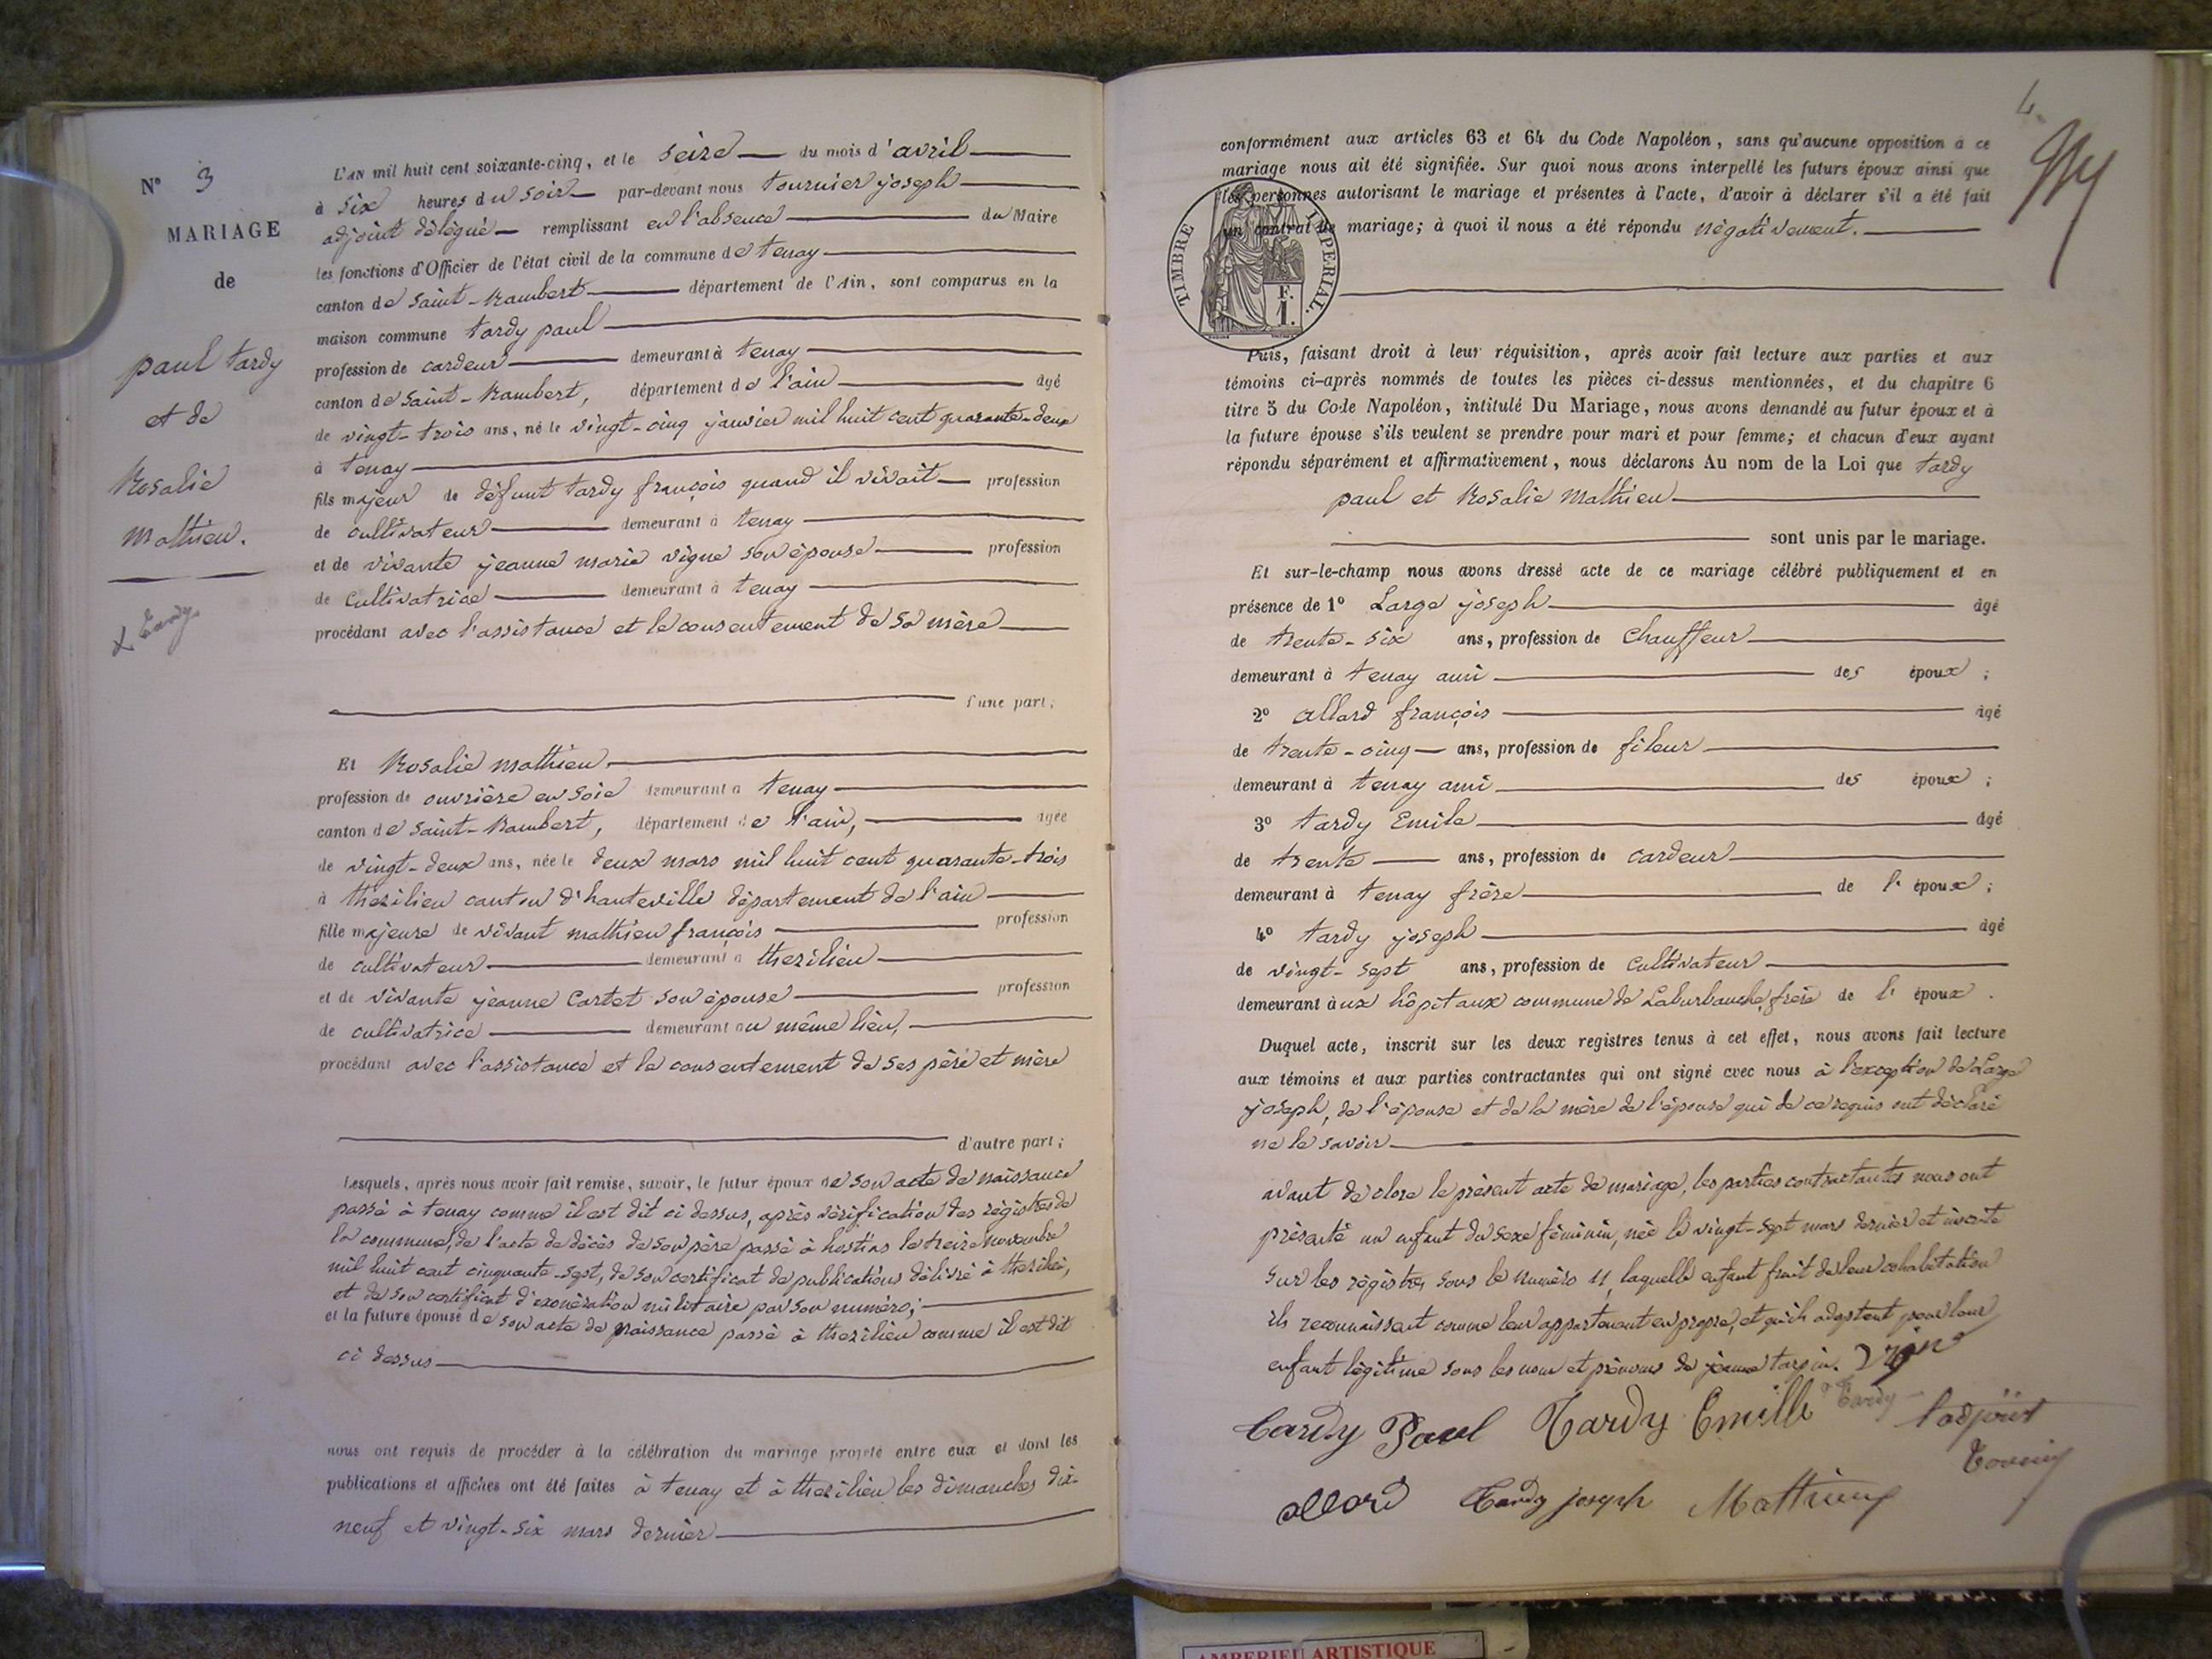 N° 3
MARIAGE
de
paul tardy
et de
Rosalie
mathieu.
L'AN mil huit cent soixante-cinq, et le seize du mois d'avril
à six heures du soir par-devant nous tournier joseph
adjoint délégué remplissant en l'absence du Maire
les fonctions d'Officier de l'état civil de la commune de tenay
canton de saint-Rambert département de l'Ain, sont comparus en la
maison commune tardy paul
profession de cardeur demeurant à tenay
canton de saint-Rambert, département de l'ain âgé
de vingt-trois ans, né le vingt-cinq janvier mil huit cent quarante-deux
à tenay
fils majeur de défunt tardy françois quand il vivait profession
de cultivateur demeurant à tenay
et de vivante jeanne marie vigne son épouse profession
de cultivatrice demeurant à tenay
procédant avec l'assistance et le consentement de sa mère
d'une part;
Et Rosalie mathieu
profession de ouvrière en soie demeurant à tenay
canton de saint-Rambert, département de l'ain, âgée
de vingt-deux ans, née le deux mars mil huit cent quarante-trois
à thezilieu canton d'hauteville département de l'ain
fille majeure de vivant mathieu françois profession
de cultivateur demeurant à thezilieu
et de vivante jeanne Cartet son épouse profession
de cultivatrice demeurant au même lieu,
procédant avec l'assistance et le consentement de ses père et mère
d'autre part;
Lesquels, après nous avoir fait remise, savoir, le futur époux de son acte de naissance
passé à tenay comme il est dit ci dessus, après vérification des régistres de
la commune, de l'acte de décès de son père passé à hostias le treize novembre
mil huit cent cinquante-sept, de son certificat de publications délivré à thezilieu,
et de son certificat d'exonération militaire par son numéro;
et la future épouse de son acte de naissance passé à thezilieu comme il est dit
ci dessus
nous ont requis de procéder à la célébration du mariage projeté entre eux et dont les
publications et affiches ont été faites à tenay et à thezilieu les dimanches dix-
neuf et vingt-six mars dernier
4
conformément aux articles 63 et 64 du Code Napoléon, sans qu'aucune opposition à ce
mariage nous ait été signifiée. Sur quoi nous avons interpellé les futurs époux ainsi que
les personnes autorisant le mariage et présentes à l'acte, d'avoir à déclarer s'il a été fait
un contrat de mariage; à quoi il nous a été répondu négativement.
TIMBRE IMPERIAL.
F.
1.
Puis, faisant droit à leur réquisition, après avoir fait lecture aux parties et aux
témoins ci-après nommés de toutes les pièces ci-dessus mentionnées, et du chapitre 6
titre 5 du Code Napoléon, intitulé Du Mariage, nous avons demandé au futur époux et à
la future épouse s'ils veulent se prendre pour mari et pour femme; et chacun d'eux ayant
répondu séparément et affirmativement, nous déclarons Au nom de la Loi que tardy
paul et Rosalie mathieu
sont unis par le mariage.
Et sur-le-champ nous avons dressé acte de ce mariage célébré publiquement et en
présence de 1° Large joseph âgé
de trente-six ans, profession de chauffeur
demeurant à tenay ami des époux;
2° allard françois âgé
de trente-cinq ans, profession de fileur
demeurant à tenay ami des époux;
3° tardy Emile âgé
de trente ans, profession de cardeur
demeurant à tenay frère de l'époux;
4° tardy joseph âgé
de vingt-sept ans, profession de cultivateur
demeurant aux hôpitaux commune de Laburbanche, frère de l'époux.
Duquel acte, inscrit sur les deux registres tenus à cet effet, nous avons fait lecture
aux témoins et aux parties contractantes qui ont signé avec nous à l'exception de Large
joseph, de l'épouse et de la mère de l'épouse qui de ce requis ont déclaré
ne le savoir
avant de clore le présent acte de mariage, les parties contractantes nous ont
présenté un enfant du sexe féminin, née le vingt-sept mars dernier et inscrite
sur les régistres sous le numéro 11, laquelle enfant fruit de leur cohabitation
ils reconnaissent comme leur appartenant en propre, et qu'ils adoptent pour leur
enfant légitime sous les nom et prénoms de jeanne
Tardy Paul Tardy Emille Tardy l'adjoint
allard Tardy joseph Mathieu
AMBERIEU ARTISTIQUE